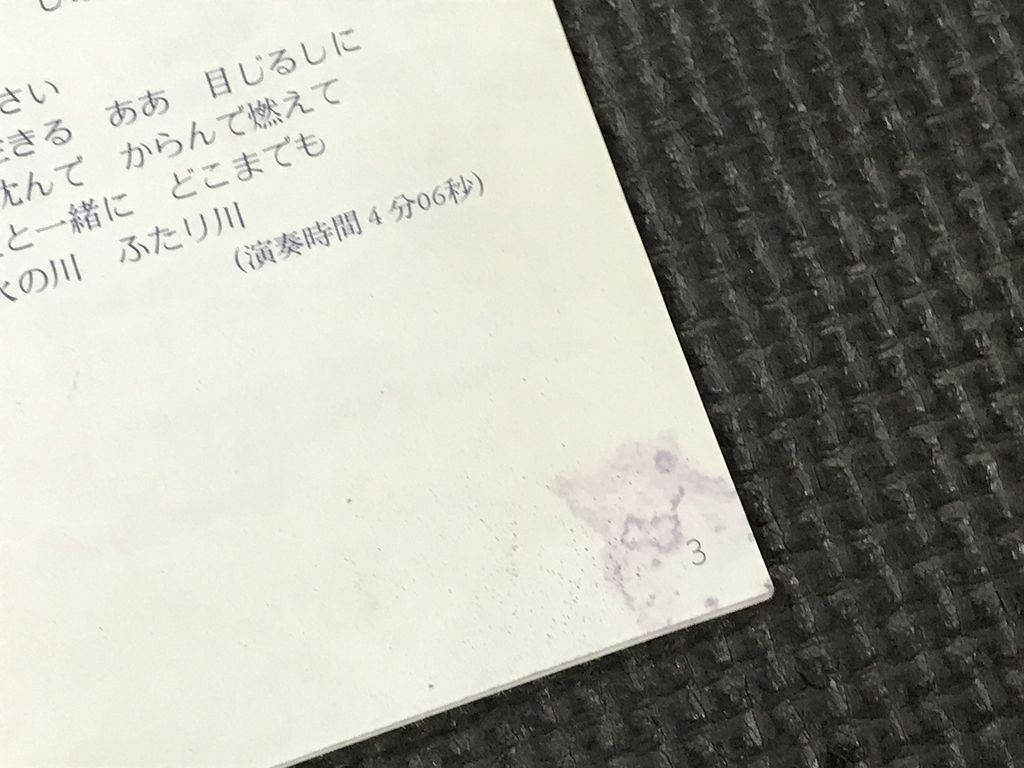 さい
きる　ああ　目じるしに
沈んで　からんで燃えて
と一緒に　どこまでも
の川　ふたり川
(演奏時間４分06秒)
3